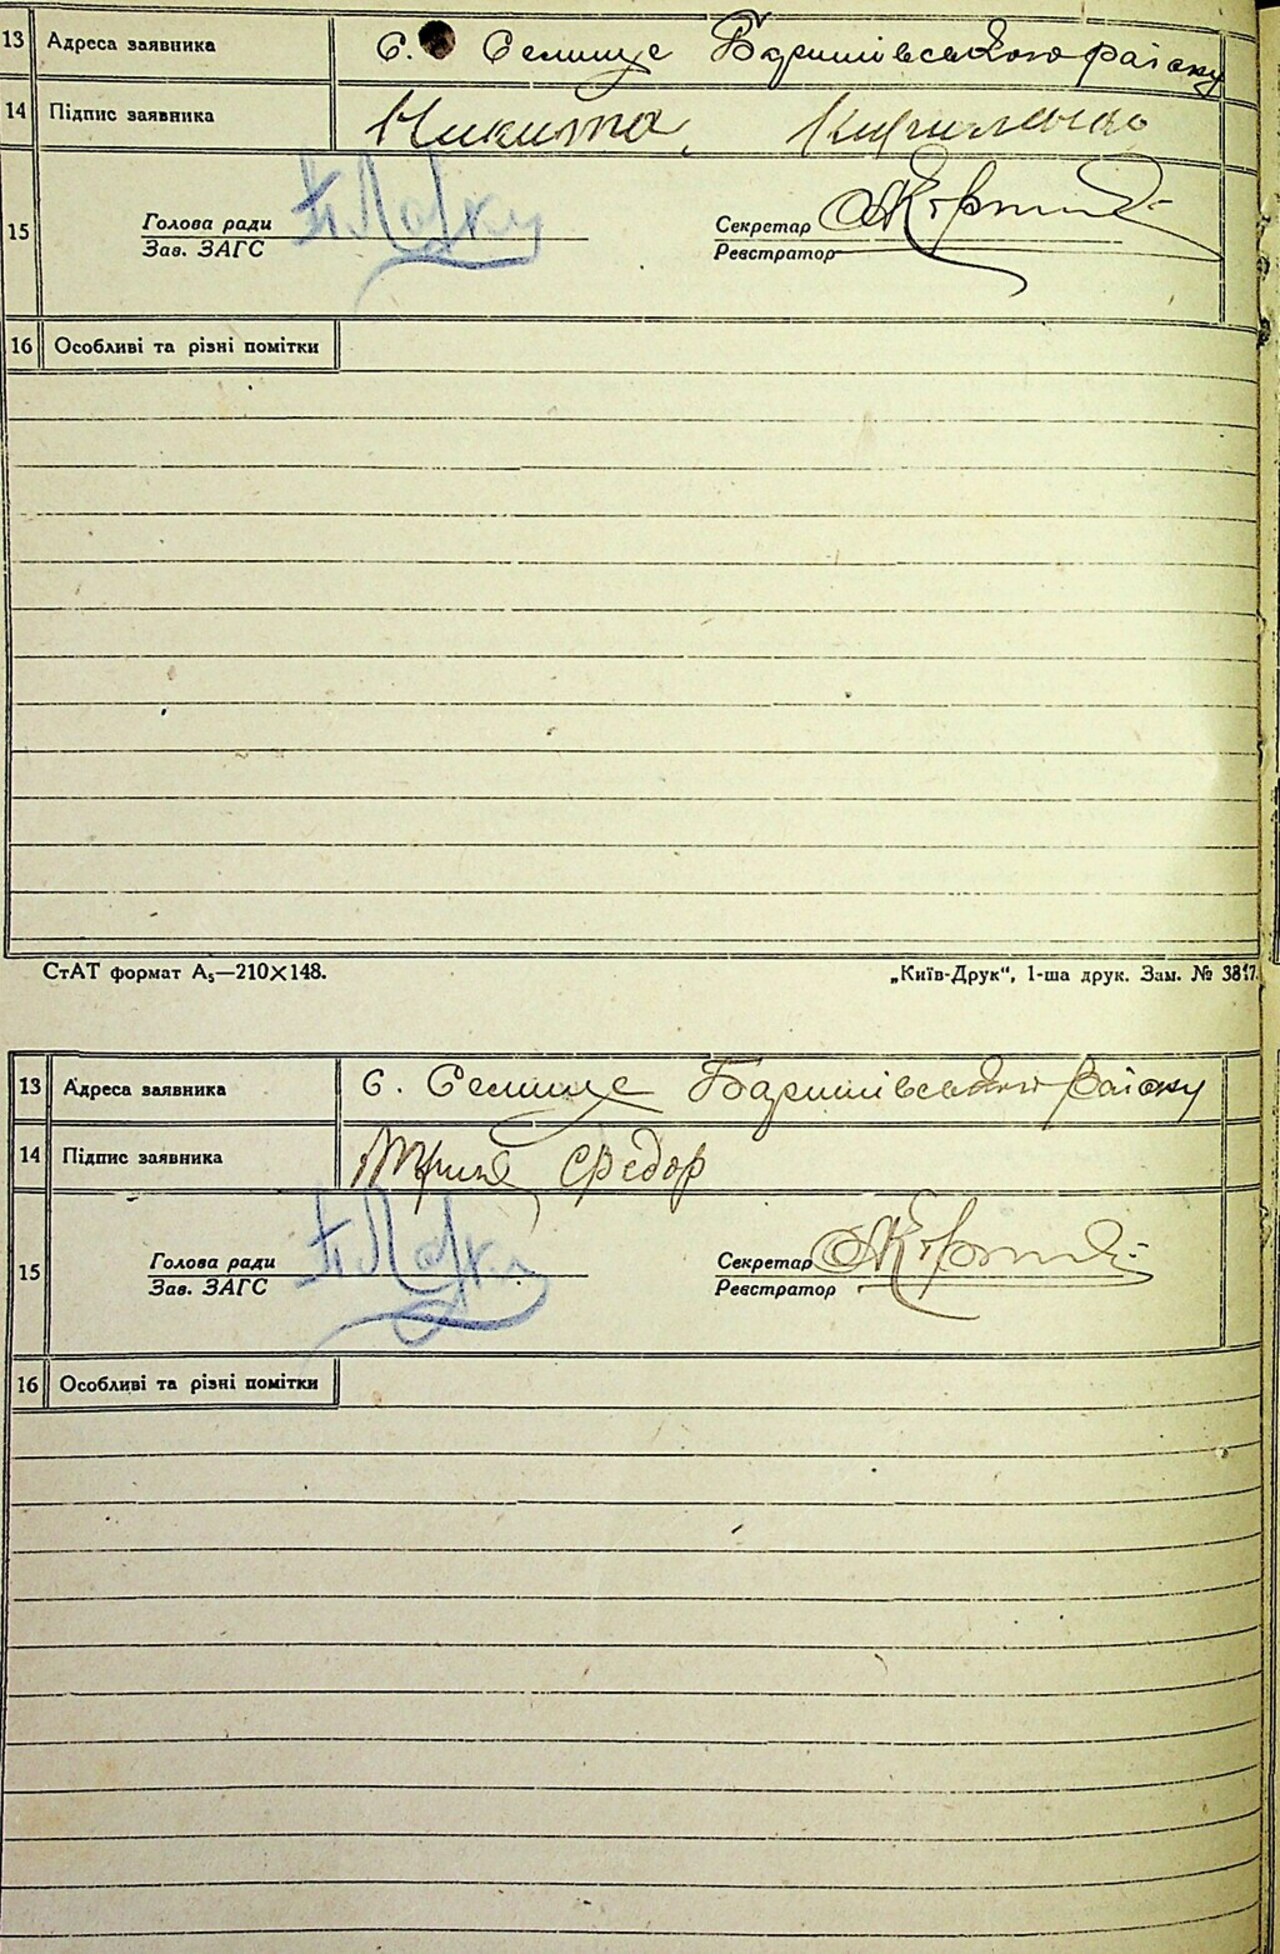 13 Адреса заявника с. Селище Баришівського району
14 Підпис заявника Никита Кириленко
15 Голова ради Секретар
Зав. ЗАГС Реєстратор
16 Особливі та різні помітки
СтАТ формат А₅—210×148. „Київ-Друк“, 1-ша друк. Зам. № 3817.
13 Адреса заявника с. Селище Баришівського району
14 Підпис заявника Федор
15 Голова ради Секретар
Зав. ЗАГС Реєстратор
16 Особливі та різні помітки